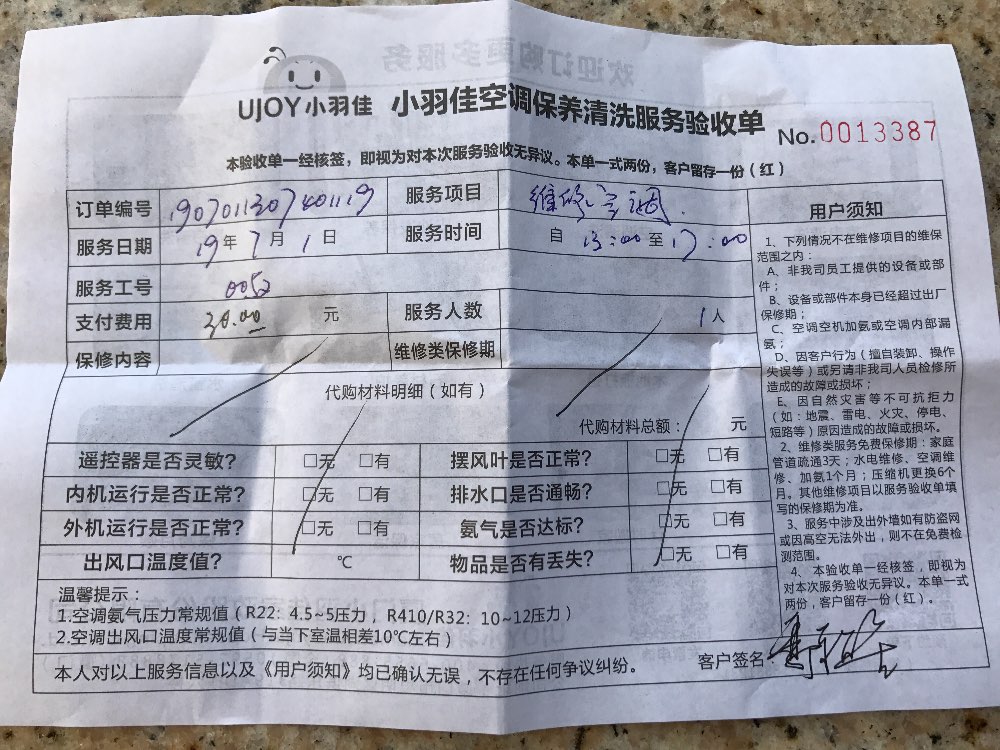 欢迎订购更多服务
UJOY小羽佳 小羽佳空调保养清洗服务验收单 No.0013387
本验收单一经核签，即视为对本次服务验收无异议。本单一式两份，客户留存一份（红）
订单编号 190701130740119 服务项目 维修空调
服务日期 19年7月1日 服务时间 自 13:00 至 17:00
服务工号 0052
支付费用 30.00 元 服务人数 1人
保修内容 维修类保修期
代购材料明细（如有）
代购材料总额： 元
遥控器是否灵敏? □无 □有 摆风叶是否正常? □无 □有
内机运行是否正常? □无 □有 排水口是否通畅? □无 □有
外机运行是否正常? □无 □有 氨气是否达标? □无 □有
出风口温度值? ℃ 物品是否有丢失? □无 □有
温馨提示：
1.空调氨气压力常规值（R22：4.5~5压力，R410/R32：10~12压力）
2.空调出风口温度常规值（与当下室温相差10℃左右）
本人对以上服务信息以及《用户须知》均已确认无误，不存在任何争议纠纷。 客户签名
用户须知
1、下列情况不在维修项目的维保
范围之内：
A、非我司员工提供的设备或部
件；
B、设备或部件本身已经超过出厂
保修期；
C、空调空机加氨或空调内部漏
氨；
D、因客户行为（擅自装卸、操作
失误等）或另请非我司人员检修所
造成的故障或损坏；
E、因自然灾害等不可抗拒力
（如：地震、雷电、火灾、停电、
短路等）原因造成的故障或损坏。
2、维修类服务免费保修期：家庭
管道疏通3天；水电维修、空调维
修、加氨1个月；压缩机更换6个
月。其他维修项目以服务验收单填
写的保修期为准。
3、服务中涉及出外墙如有防盗网
或因高空无法外出，则不在免费检
测范围。
4、本验收单一经核签，即视为
对本次服务验收无异议。本单一式
两份，客户留存一份（红）。